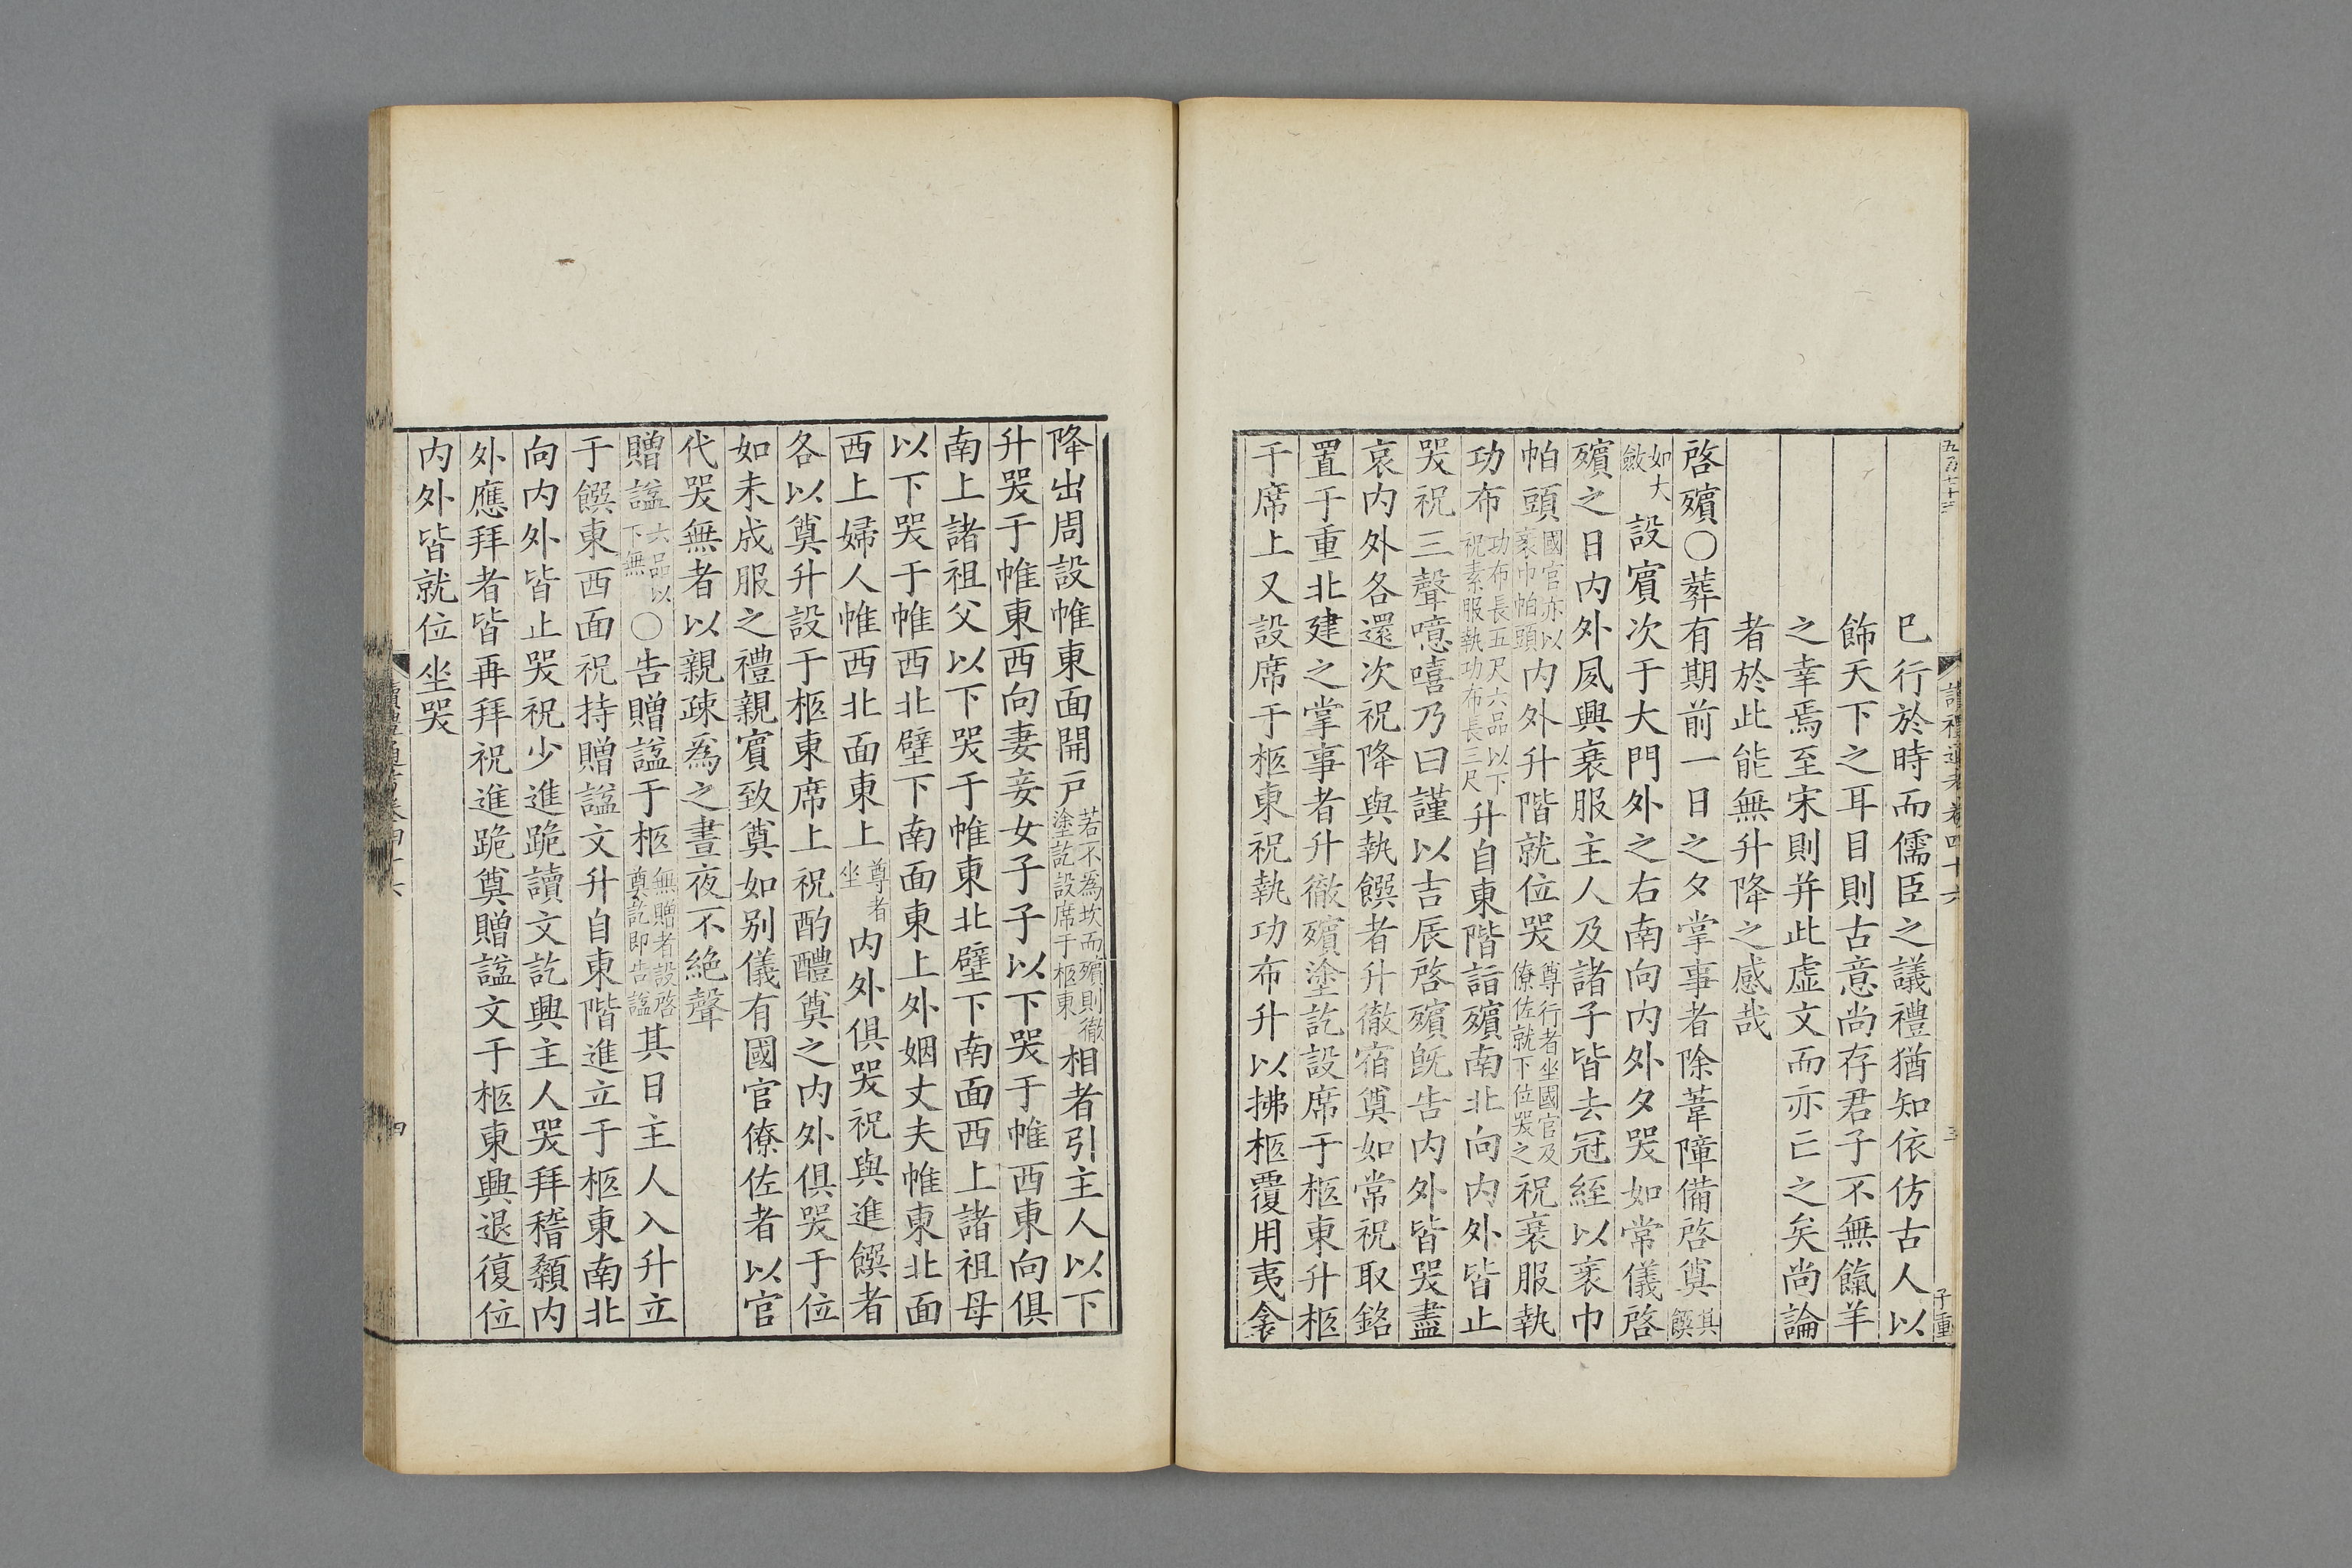 五百七十三
讀禮通考卷四十六
三
子重
已行於時而儒臣之議禮猶知依仿古人以
飾天下之耳目則古意尚存君子不無餼羊
之幸焉至宋則并此虛文而亦亡之矣尚論
者於此能無升降之感哉
啓殯○葬有期前一日之夕掌事者除葦障備啓奠其饌
如大斂設賓次于大門外之右南向内外夕哭如常儀啓
殯之日内外夙興衰服主人及諸子皆去冠絰以衺巾
帕頭國官亦以衺巾帕頭内外升階就位哭尊行者坐國官及僚佐就下位哭之祝衰服執
功布功布長五尺六品以下祝素服執功布長三尺升自東階詣殯南北向内外皆止
哭祝三聲噫嘻乃曰謹以吉辰啓殯旣告内外皆哭盡
哀内外各還次祝降與執饌者升徹宿奠如常祝取銘
置于重北建之掌事者升徹殯塗訖設席于柩東升柩
于席上又設席于柩東祝執功布升以拂柩覆用夷衾
降出周設帷東面開戸若不為坎而殯則徹塗訖設席于柩東相者引主人以下
升哭于帷東西向妻妾女子子以下哭于帷西東向俱
南上諸祖父以下哭于帷東北壁下南面西上諸祖母
以下哭于帷西北壁下南面東上外姻丈夫帷東北面
西上婦人帷西北面東上尊者坐内外俱哭祝與進饌者
各以奠升設于柩東席上祝酌醴奠之内外俱哭于位
如未成服之禮親賓致奠如别儀有國官僚佐者以官
代哭無者以親疎爲之晝夜不絶聲
贈諡六品以下無○告贈諡于柩無贈者設啓奠訖即告諡其日主人入升立
于饌東西面祝持贈諡文升自東階進立于柩東南北
向内外皆止哭祝少進跪讀文訖興主人哭拜稽顙内
外應拜者皆再拜祝進跪奠贈諡文于柩東興退復位
内外皆就位坐哭
讀禮通考卷四十六
四